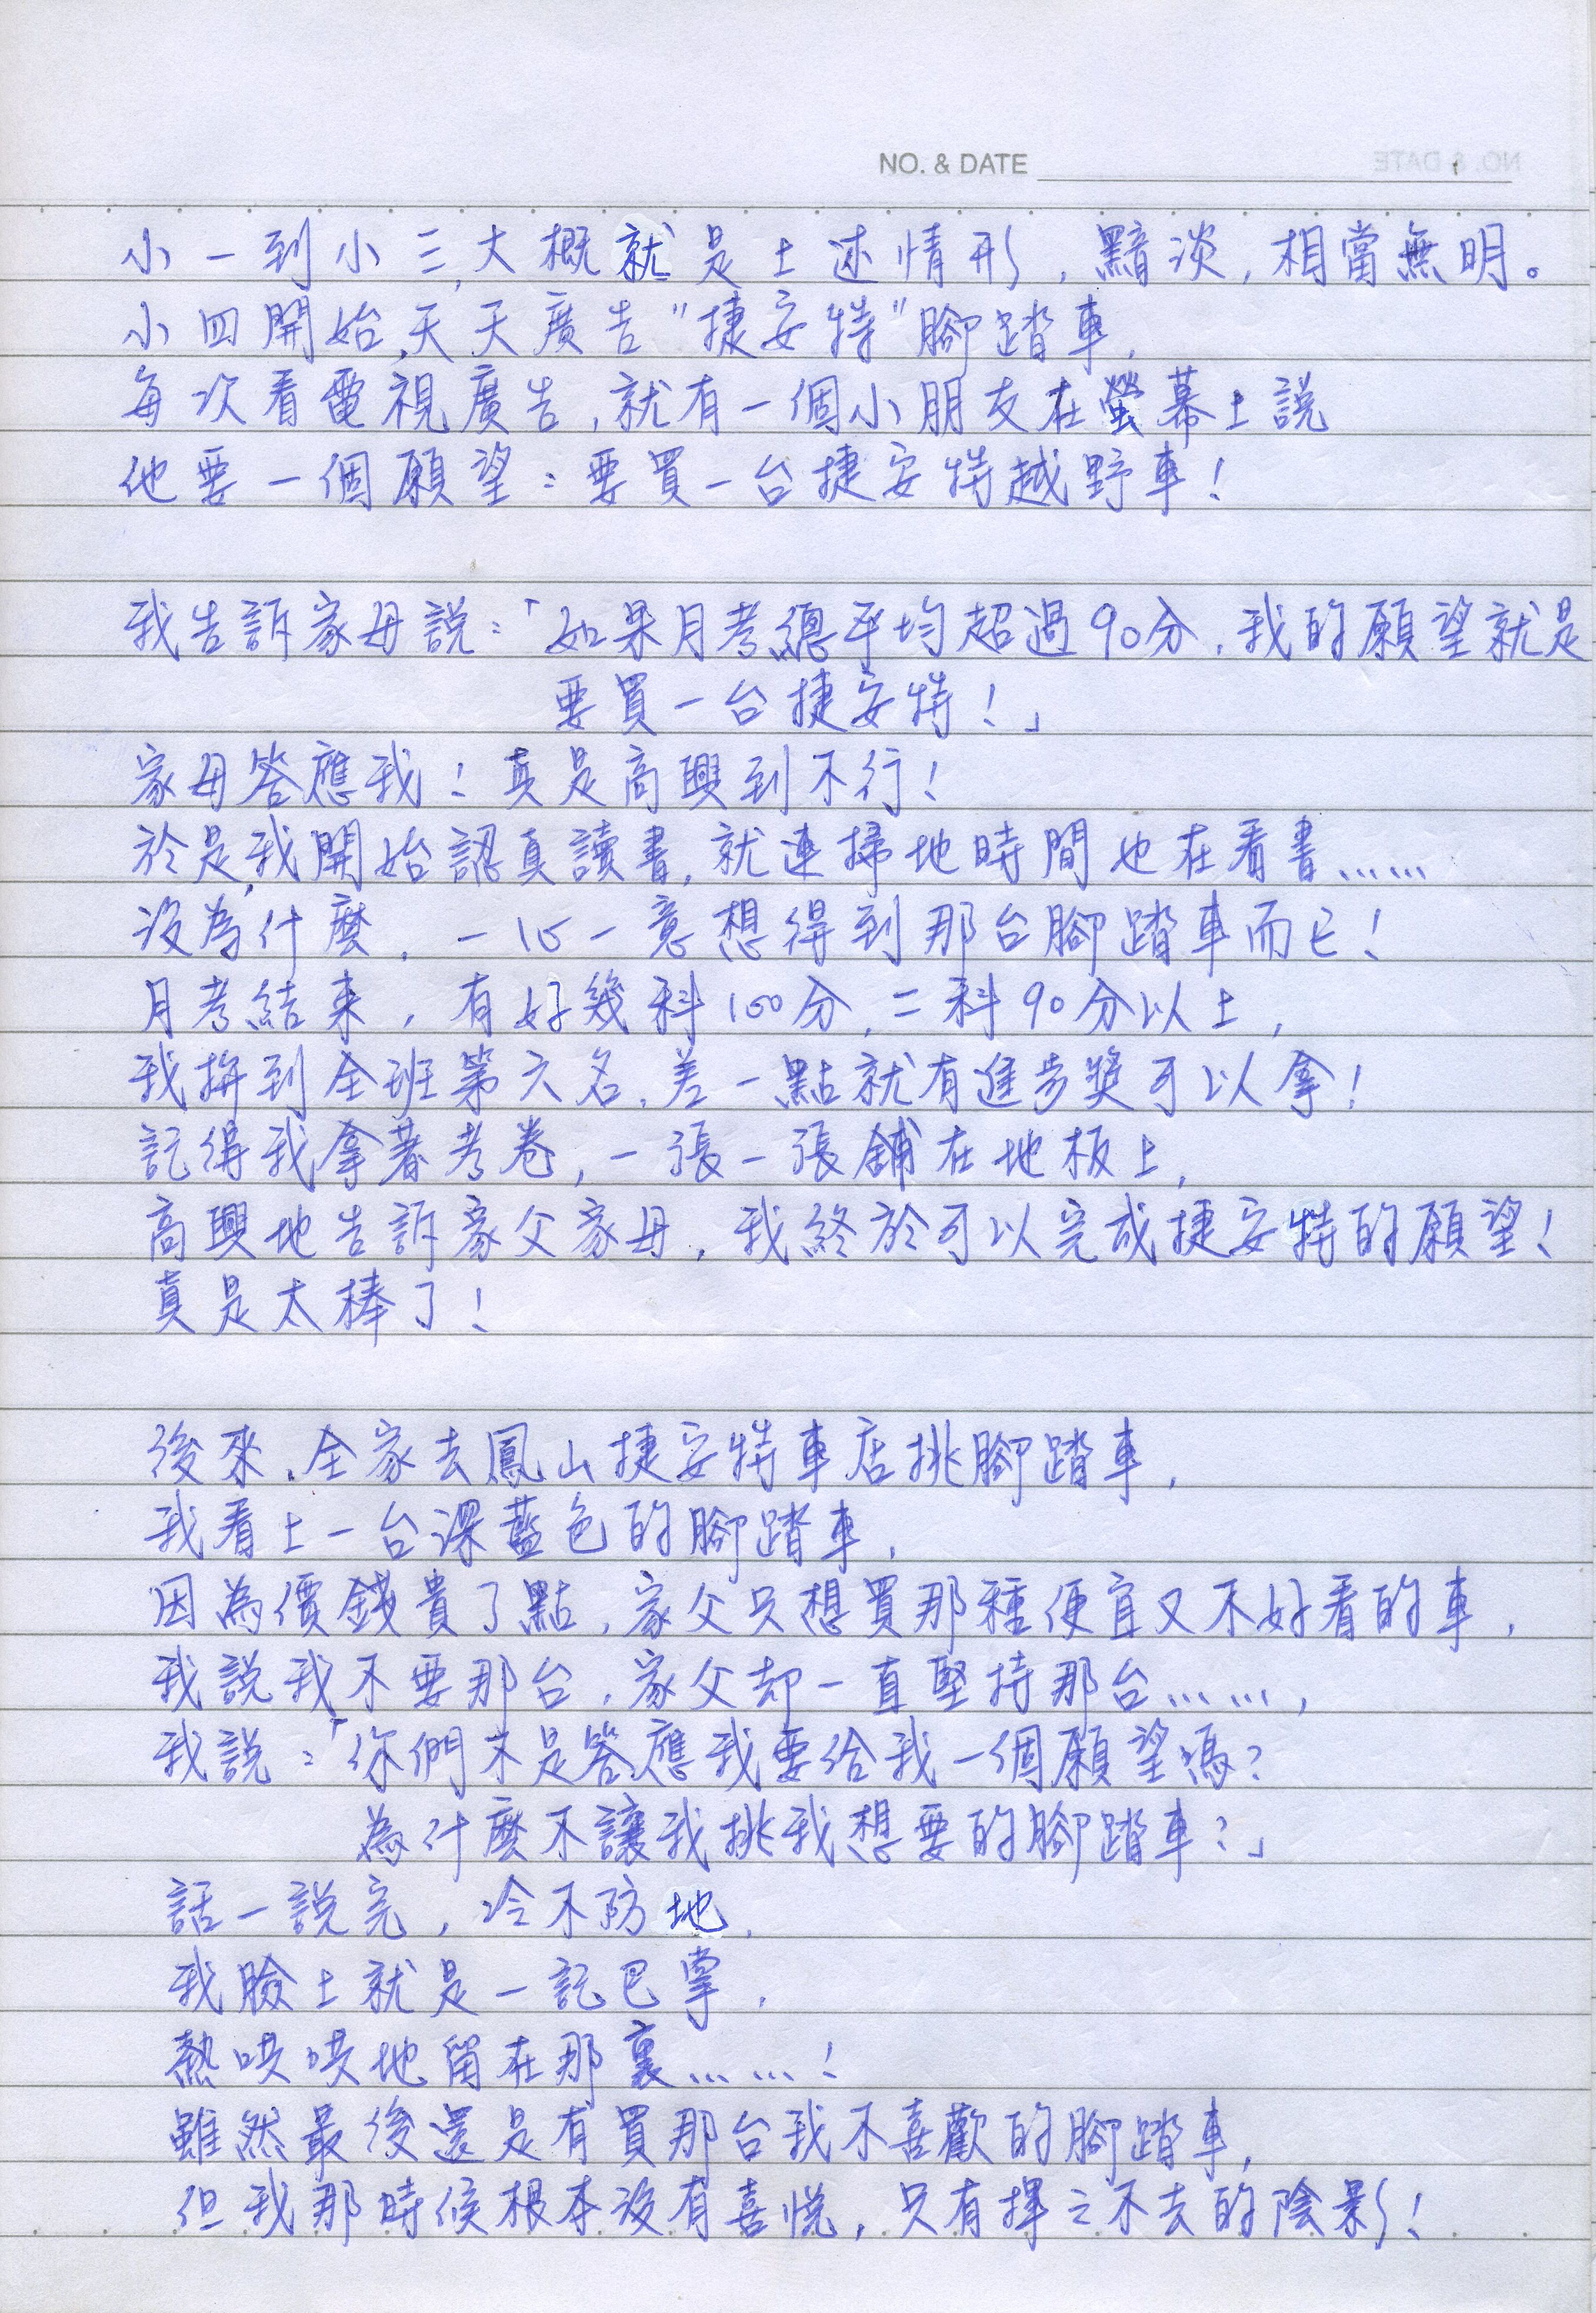 NO. & DATE
小一到小三,大概就是上述情形,黯淡,相當無明。
小四開始,天天廣告"捷安特"腳踏車,
每次看電視廣告,就有一個小朋友在螢幕上說
他要一個願望:要買一台捷安特越野車!
我告訴家母說:「如果月考總平均超過90分,我的願望就是
要買一台捷安特!」
家母答應我!真是高興到不行!
於是,我開始認真讀書,就連掃地時間也在看書……
沒為什麼,一心一意想得到那台腳踏車而已!
月考結束,有好幾科100分,二科90分以上,
我拚到全班第六名,差一點就有進步獎可以拿!
記得我拿著考卷,一張一張舖在地板上,
高興地告訴家父家母,我終於可以完成捷安特的願望!
真是太棒了!
後來,全家去鳳山捷安特車店挑腳踏車,
我看上一台深藍色的腳踏車,
因為價錢貴了點,家父只想買那種便宜又不好看的車,
我說我不要那台,家父却一直堅持那台……,
我說:「你們不是答應我要給我一個願望嗎?
為什麼不讓我挑我想要的腳踏車?」
話一說完,冷不防地,
我臉上就是一記巴掌,
熱哄哄地留在那裏……!
雖然最後還是有買那台我不喜歡的腳踏車,
但我那時候根本沒有喜悅,只有揮之不去的陰影!